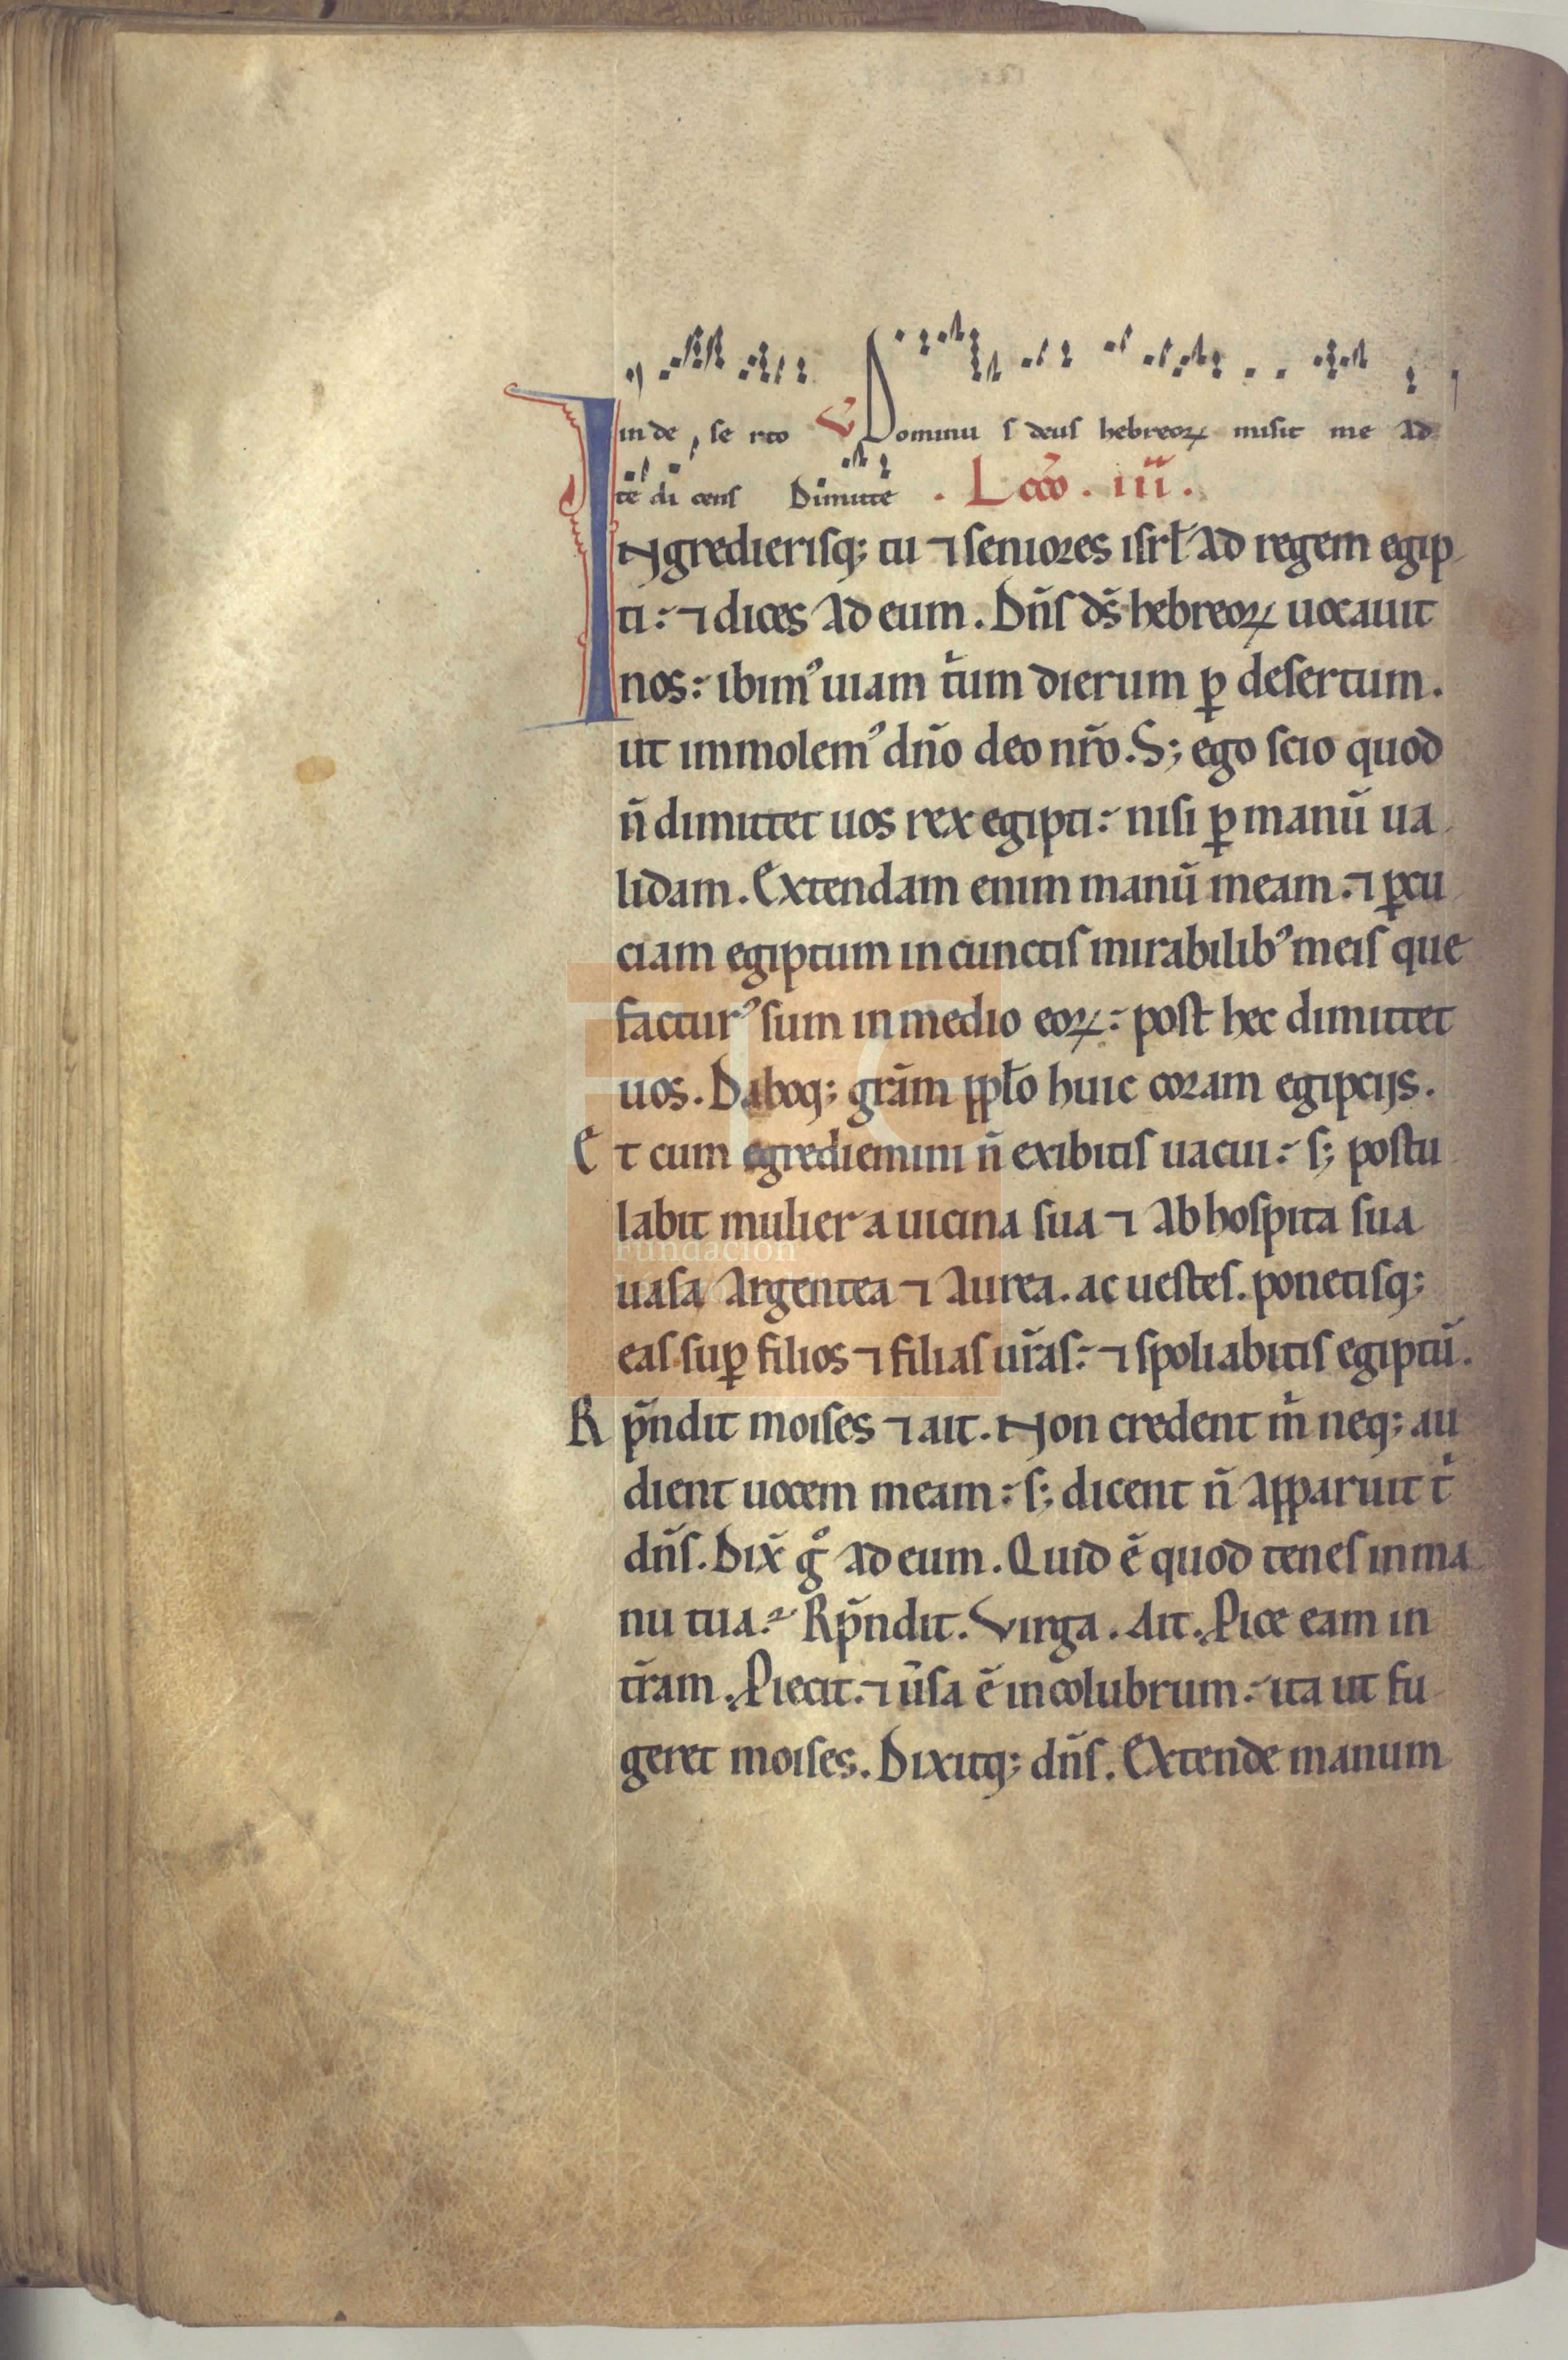 in de se rto V Dominu s deus hebreoꝝ misit me ad
te di cens Dimitte . Lcc̄o . iii .
INgredierisq; tu ⁊ seniores isrl̄ ad regem egip
ti: ⁊ dices ad eum. Dn̄s ds̄ hebreoꝝ uocauit
nos: ibimꝰ uiam t̄um dierum ꝑ desertum.
ut immolemꝰ dn̄o deo nr̄o. S; ego scio quod
n̄ dimittet uos rex egipti: nisi ꝑ manū ua
lidam. Extendam enim manū meam. ⁊ ꝑcu
ciam egiptum in cunctis mirabilibꝰ meis que
facturꝰ sum in medio eoꝝ: post hec dimittet
uos. Daboq; grām ppl̄o huic coram egipcijs.
Et cum egrediemini n̄ exibitis uacui: s; postu
labit mulier a uicina sua ⁊ ab hospita sua
uasa argentea ⁊ aurea. ac uestes. ponetisq;
eas suꝑ filios ⁊ filias ur̄as: ⁊ spoliabitis egiptū.
Rp̄ndit moises ⁊ ait. Non credent m̄ neq; au
dient uocem meam: s; dicent n̄ apparuit t̄
dn̄s. Dix̄ gͦ ad eum. Quid ē quod tenes in ma
nu tua? Rp̄ndit. Virga. Ait. Pice eam in
tr̄am. Piecit. ⁊ ūsa ē in colubrum: ita ut fu
geret moises. Dixitq; dn̄s. Extende manum
Fundación